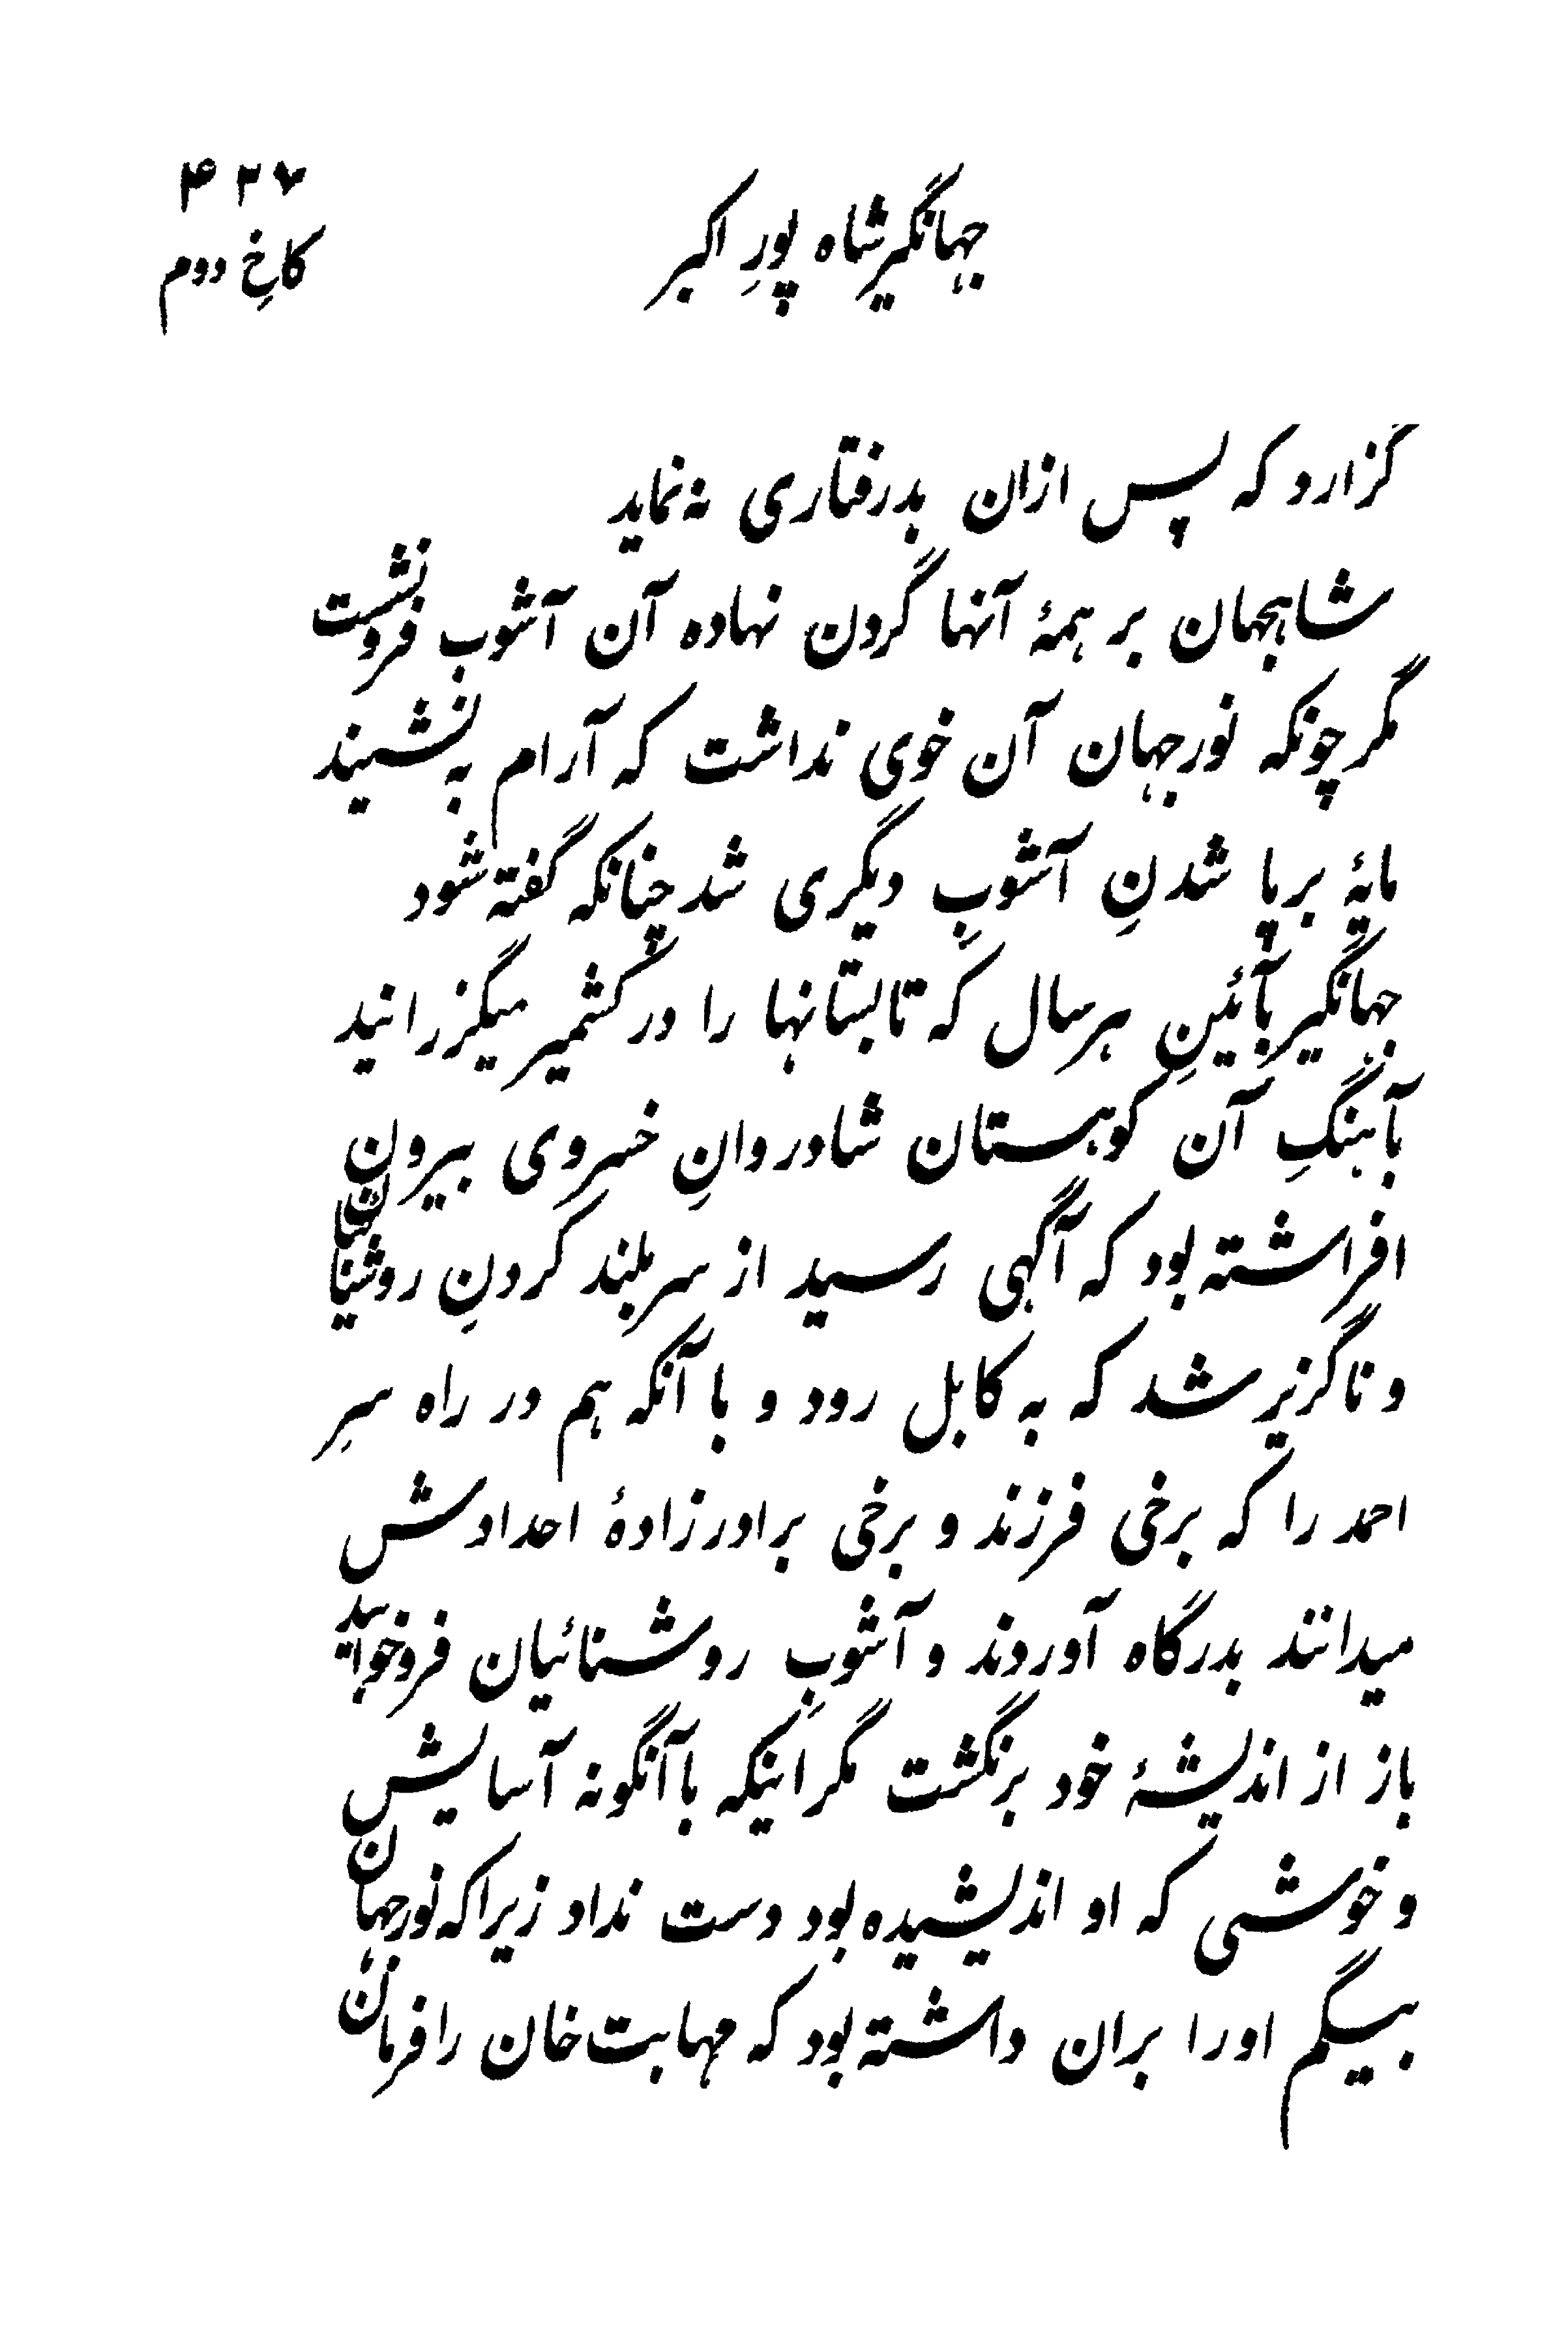 ۴۲۶
جهانگیر شاه پورِ اکبر
کاخِ دوم
گزارد که پس ازان بدرفتاری نه نماید
شاهجهان بر همهٔ آنها گردن نهاده آن آشوب فرونشست
مگر چونکه نورجهان آن خوی نداشت که آرام به نشیند
مایهٔ برپا شدنِ آشوبِ دیگری شد چنانکه گفته شود
جهانگیر بآئینِ هر سال که تابستانها را در کشمیر میگزرانید
بآهنگِ آن کوهستان شادروانِ خسروی بیرون
افراشته بود که آگهی رسید از سر بلند کردنِ روشنائیان
و ناگزیر شد که به کابل رود و با آنکه هم در راه سرِ
احمد را که برخی فرزند و برخی برادرزادهٔ احدادش
میدانند بدرگاه آوردند و آشوبِ روشنائیان فروخوابید
باز از اندیشهٔ خود برنگشت مگر اینکه با آنگونه آسایش
و خوشی که او اندیشیده بود دست نداد زیرا که نورجهان
بیگم او را بران داشته بود که مهابت خان را فرمان